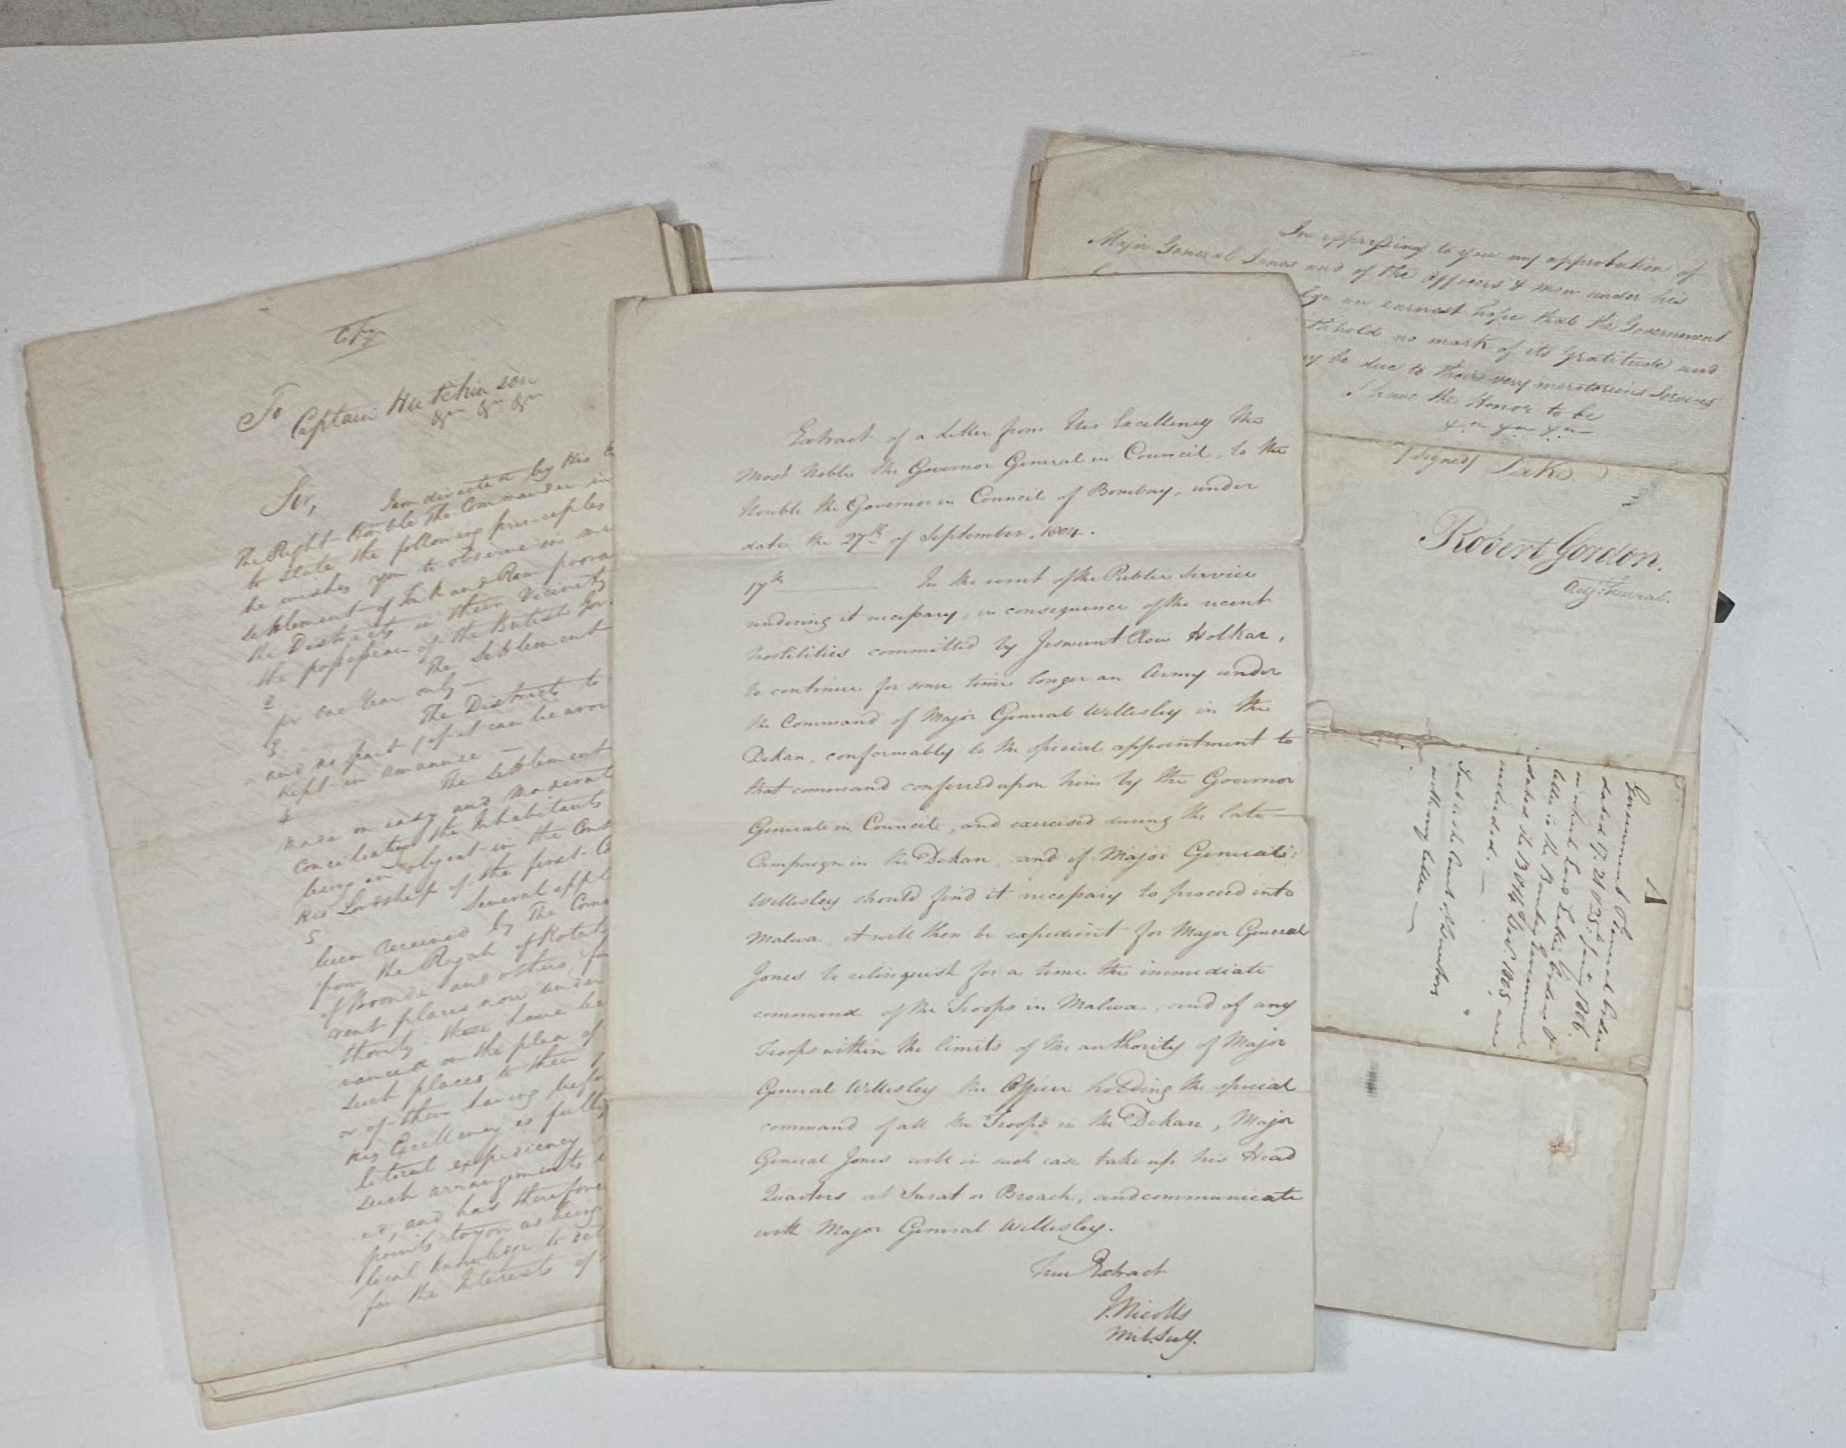 Copy
To
Captain Hutchinson
&c &c &c
Sir,
I am directed by His
The Right Honble The Commander in
to state the following principles
he wishes you to observe in
settlement of Tonk and Rampoora
the Districts in their Vicinity
the possession of the British Gov
2 The Settlement
for One Year only
3 The Districts to
and no part, if it can be
kept in Amaunee
4 The Settlement
made on easy and moderate
conciliating the Inhabitants
being an object in the
His Lordship of the first
5 Several
been received by The Com
from the Rajah of Kotah
of Boondi and others, for
rent places now under
thority; these have be
vanced on the plea of
such places to them
or of them having befo
His Excellency is fully
litical expediency
such arrangements
ed, and has therefore
points to you as being
local knowledge to
for the Interests of
Extract of a Letter from His Excellency The
Most Noble The Governor General in Council, to the
Honble the Governor in Council of Bombay, under
date the 27th of September, 1804.
17th In the event of the Public Service
rendering it necessary, in consequence of the recent
hostilities committed by Jeswunt Row Holkar,
to continue for some time longer an Army under
the Command of Major General Wellesley in the
Dekan, conformably to the special appointment to
that command conferred upon him by the Governor
General in Council, and exercised during the late
Campaign in the Dekan, and if Major General
Wellesley should find it necessary to proceed into
Malwa, it will then be expedient for Major General
Jones to relinquish for a time the immediate
command of the Troops in Malwa, and of any
Troops within the limits of the authority of Major
General Wellesley the Officer holding the special
command of all the Troops in the Dekan, Major
General Jones will in such case take up his Head
Quarters at Surat or Broach, and communicate
with Major General Wellesley.
True Extract
J. Nicolls
Mil. Secy.
In expressing to you my approbation of
Major General Jones and of the Officers & men under his
an earnest hope that the Government
thhold no mark of its gratitude and
ay be due to their very meritorious Services
I have the Honor to be
&ca &ca &ca
(Signed) Lake
Robert Gordon.
Adj. General.
A
Government General Orders
dated 17. 21 & 25th Jany 1806.
in which Lord Lake's Orders &
Letter to the Bombay Government
dated the Decr 1805 are
included.
Sent to the Court of Directors
with my letter